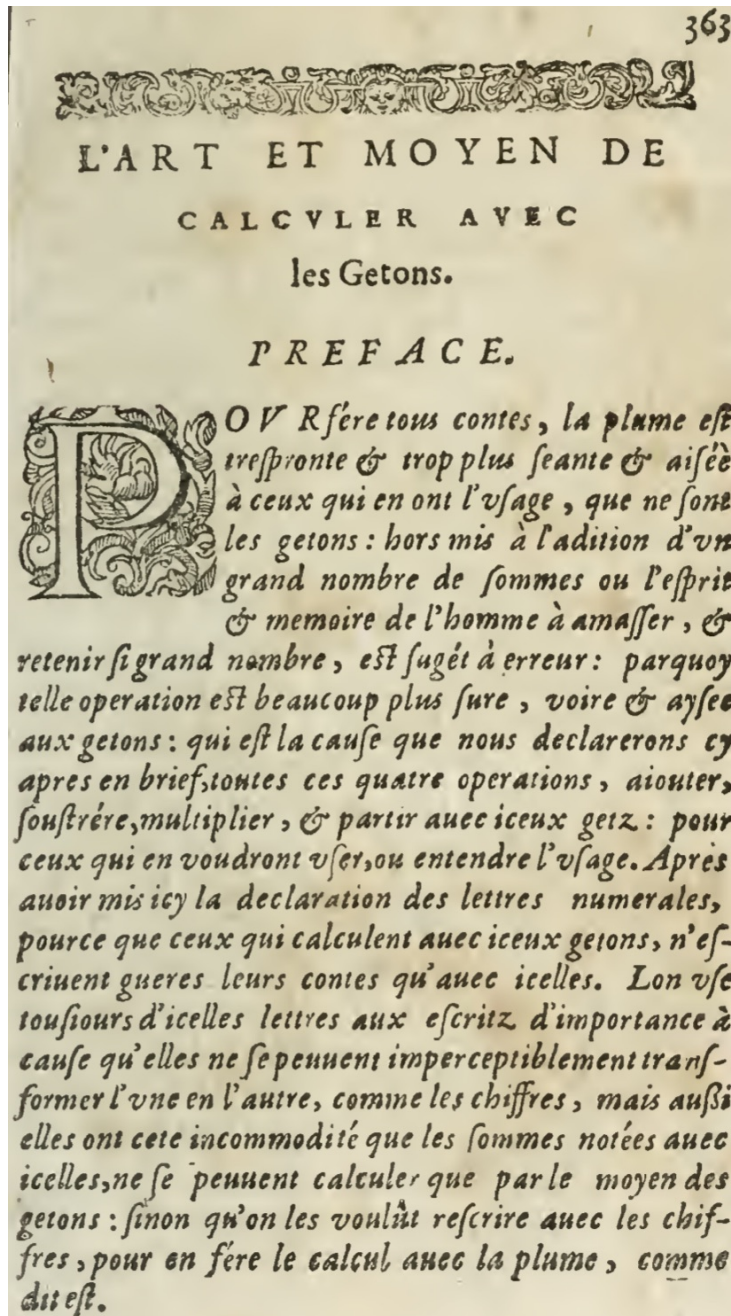 363
L'ART ET MOYEN DE
CALCVLER AVEC
les Getons.
PREFACE.
POVR fére tous contes, la plume eſt
treſpronte & trop plus ſeante & aiſéè
à ceux qui en ont l'vſage, que ne ſont
les getons : hors mis à l'adition d'vn
grand nombre de ſommes ou l'eſprit
& memoire de l'homme à amaſſer, &
retenir ſi grand nombre, eſt ſugét à erreur : parquoy
telle operation eſt beaucoup plus ſure, voire & ayſee
aux getons : qui eſt la cauſe que nous declarerons cy
apres en brief, toutes ces quatre operations, aiouter,
ſouſtrére, multiplier, & partir auec iceux getz : pour
ceux qui en voudront vſer, ou entendre l'vſage. Apres
auoir mis icy la declaration des lettres numerales,
pource que ceux qui calculent auec iceux getons, n'eſ-
criuent gueres leurs contes qu'auec icelles. Lon vſe
touſiours d'icelles lettres aux eſcritz d'importance à
cauſe qu'elles ne ſe peuuent imperceptiblement tranſ-
former l'vne en l'autre, comme les chiffres, mais auſſi
elles ont cete incommodité que les ſommes notées auec
icelles, ne ſe peuuent calculer que par le moyen des
getons : ſinon qu'on les voulût reſcrire auec les chif-
fres, pour en fére le calcul auec la plume, comme
dit eſt.